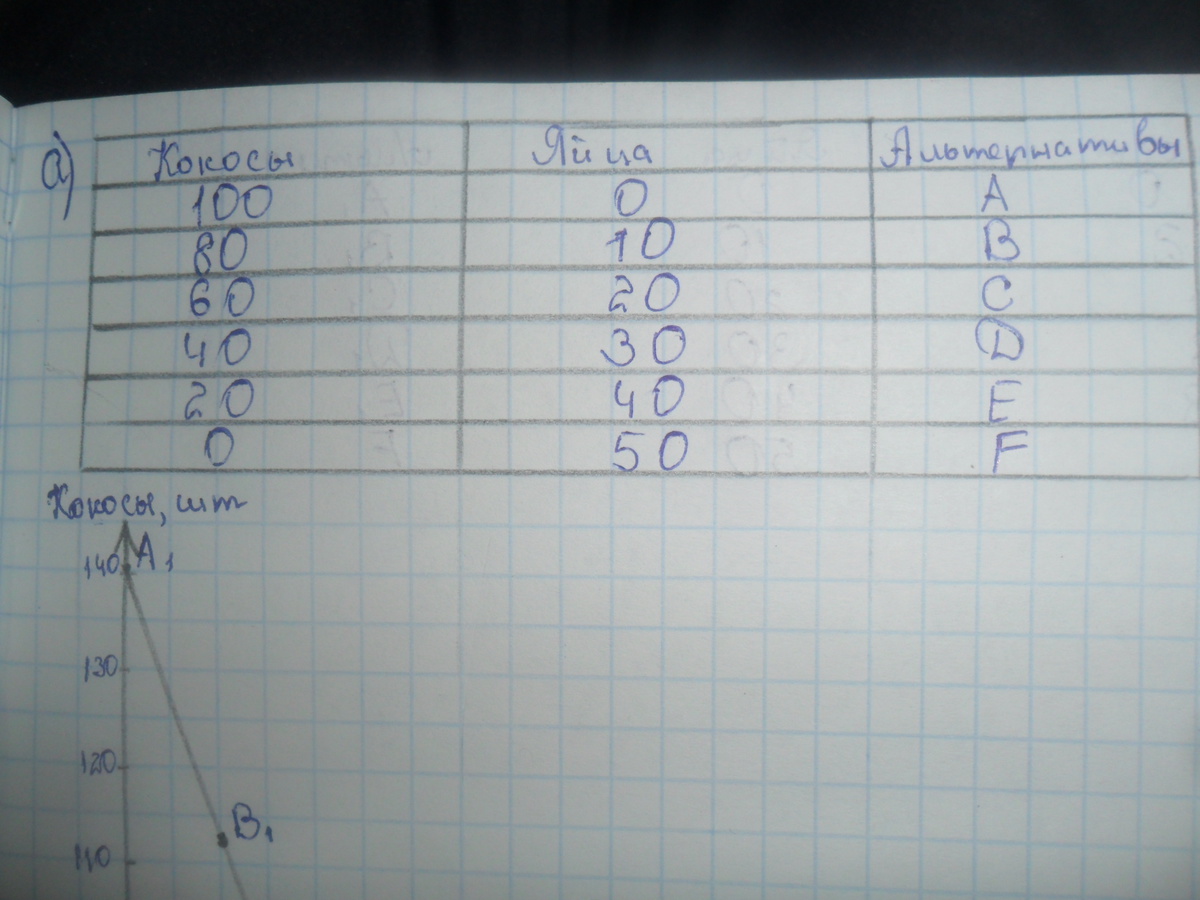 а) Кокосы Яйца Альтернативы
100 0 A
80 10 B
60 20 C
40 30 D
20 40 E
0 50 F
Кокосы, шт
140 A1
130
120
B1
110